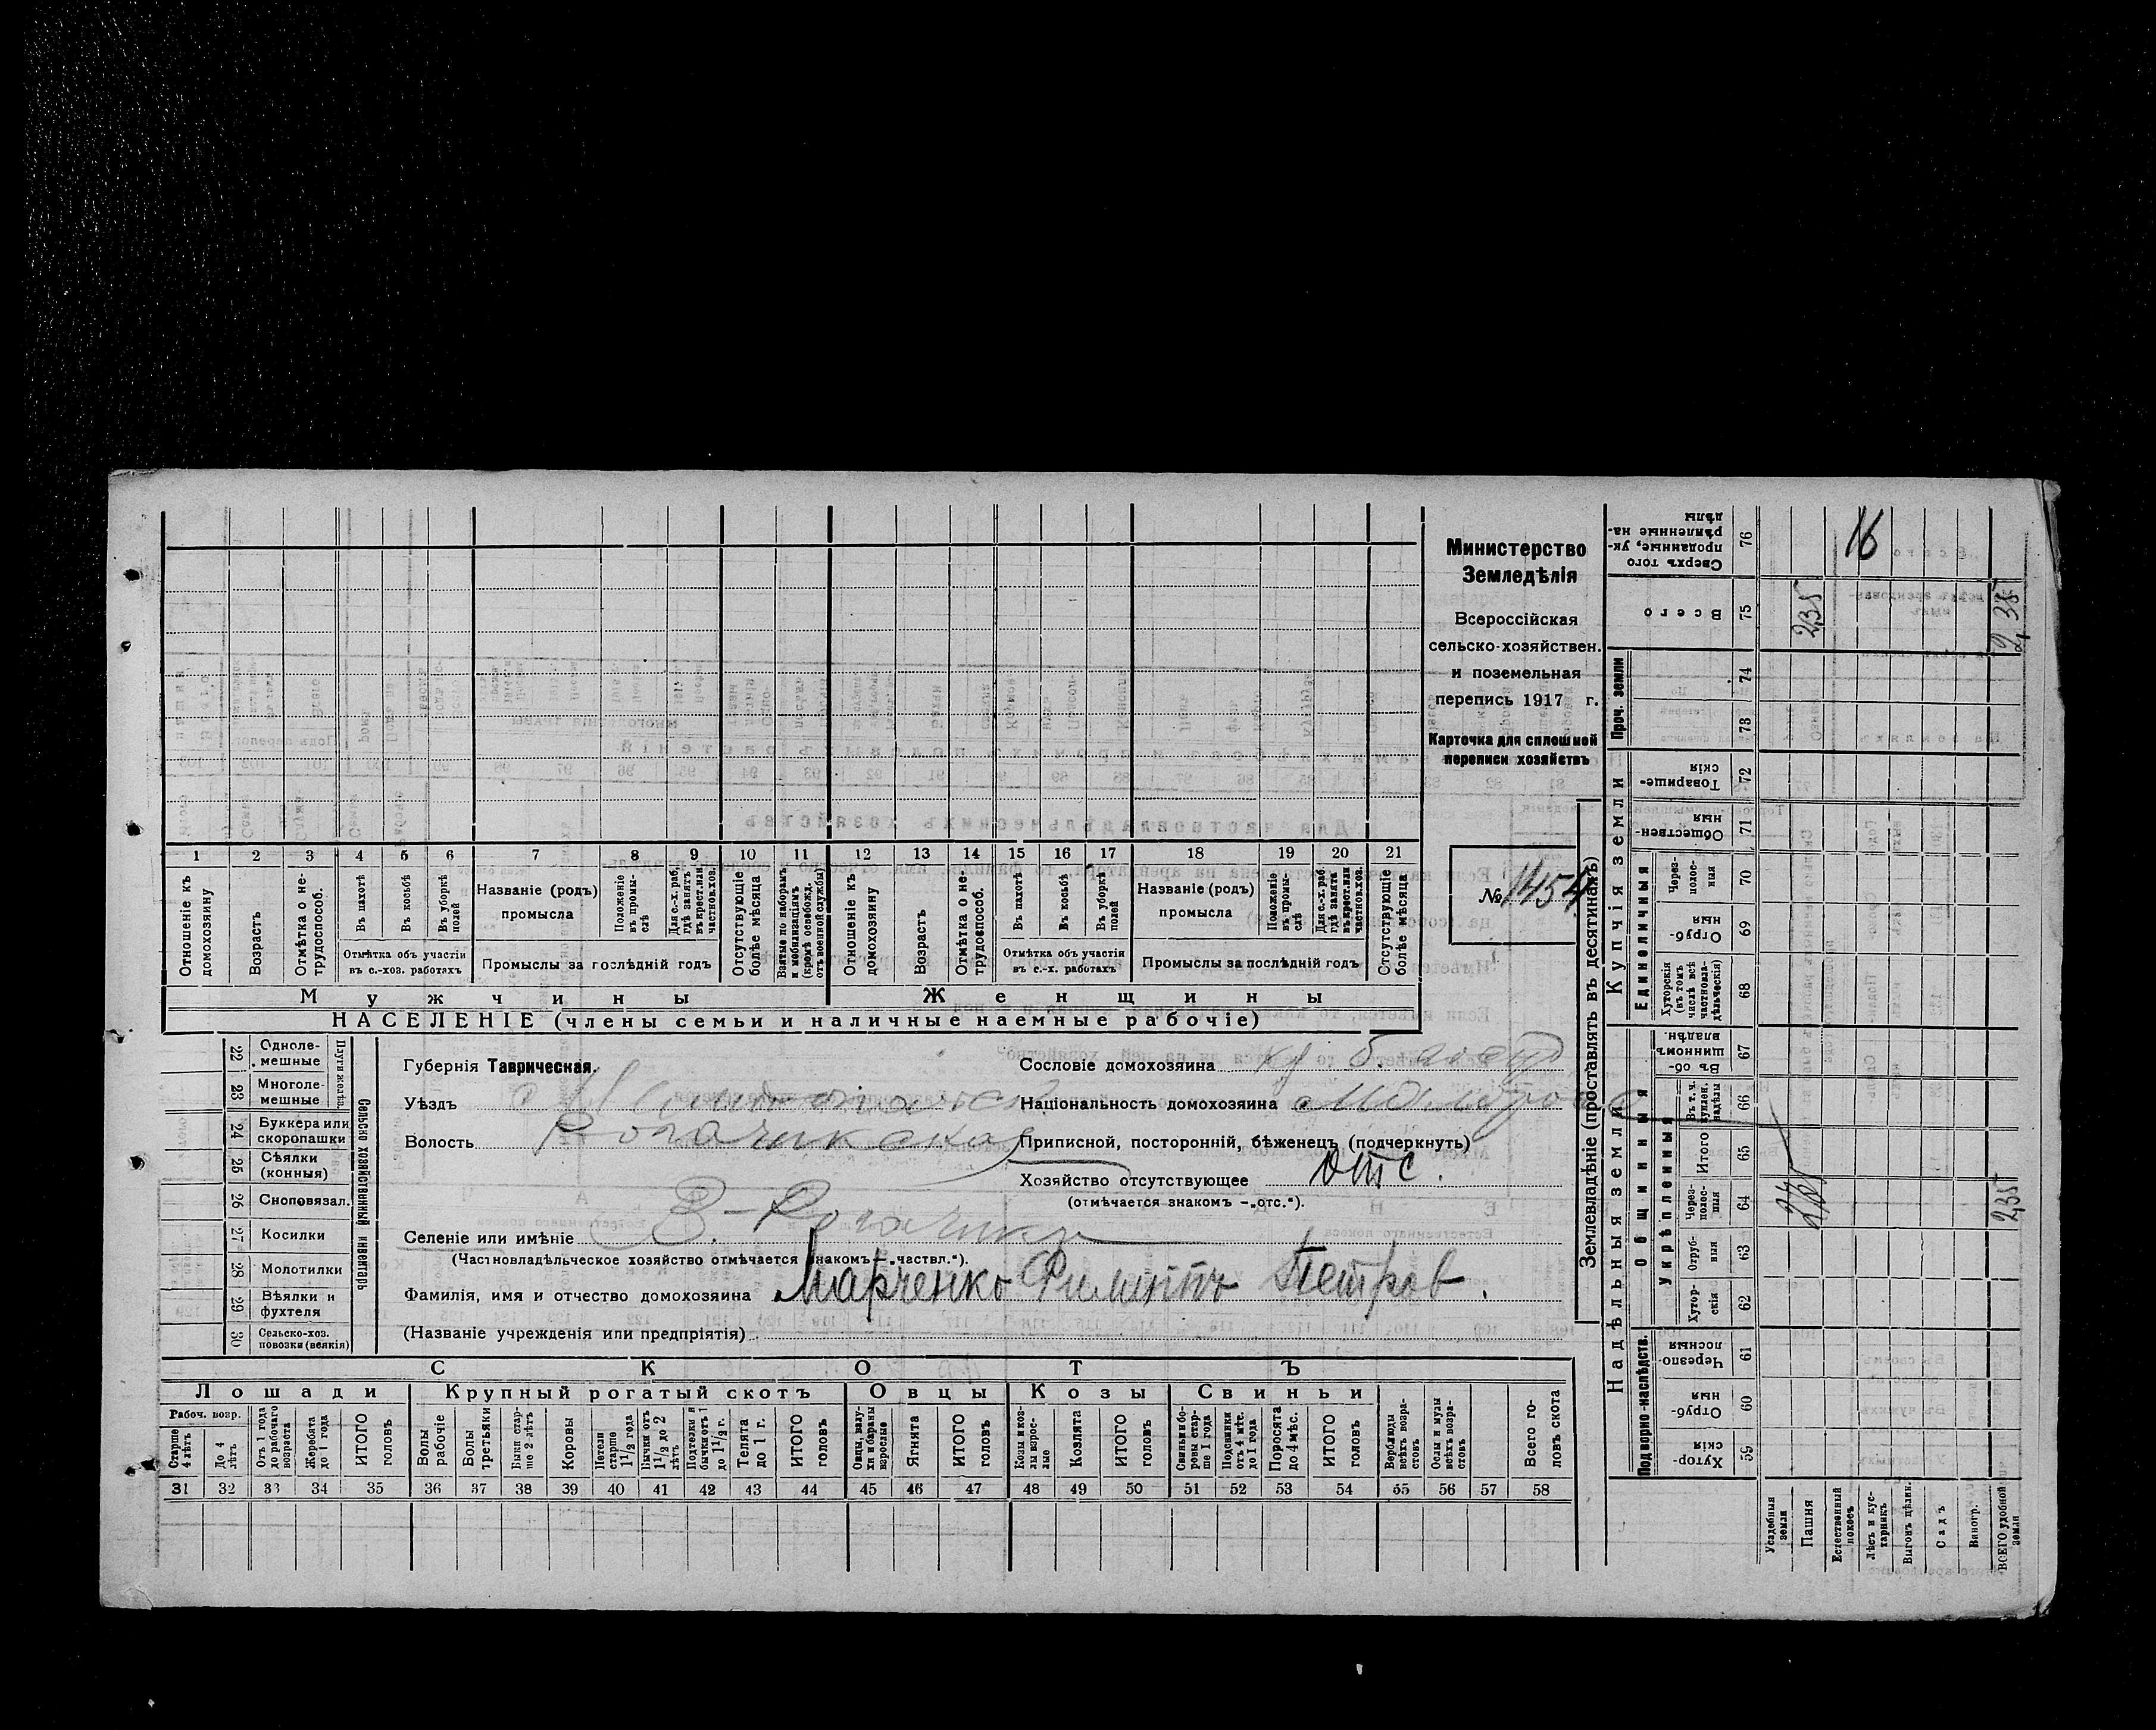 Министерство
Земледѣлія
Всероссійская
сельско-хозяйствен.
и поземельная
перепись 1917 г.
Карточка для сплошной
переписи хозяйствъ
№ 1454
1 2 3 4 5 6 7 8 9 10 11 12 13 14 15 16 17 18 19 20 21
Отношеніе къ домохозяину
Возрастъ
Отмѣтка о не-трудоспособ.
Въ пахотѣ
Въ косьбѣ
Въ уборкѣ полей
Отмѣтка объ участіи
въ с.-хоз. работахъ
Названіе (родъ)
промысла
Положеніе въ промы-слѣ
Для с.-х. раб. гдѣ занятъ въ крест. или частнов. хоз.
Промыслы за послѣдній годъ
Отсутствующіе болѣе мѣсяца
Взятые по наборамъ и мобилизаціямъ (кромѣ освобожд. отъ военной службы)
Отношеніе къ домохозяину
Возрастъ
Отмѣтка о не-трудоспособ.
Въ пахотѣ
Въ косьбѣ
Въ уборкѣ полей
Отмѣтка объ участіи
въ с.-х. работахъ
Названіе (родъ)
промысла
Положеніе въ промы-слѣ
Для с.-х. раб. гдѣ занята въ крест. или частнов. хоз.
Промыслы за послѣдній годъ
Отсутствующіе болѣе мѣсяца
Мужчины
Женщины
НАСЕЛЕНІЕ (члены семьи и наличные наемные рабочіе)
22 Одноле-мешные
23 Многоле-мешные
Плуги желѣз.
24 Буккера или скоропашки
25 Сѣялки (конныя)
26 Сноповязал.
27 Косилки
28 Молотилки
29 Вѣялки и фухтеля
30 Сельско-хоз. повозки (всякія)
Сельско хозяйственный инвентарь
Губернія Таврическая.
Уѣздъ
Волость Рогачикская
Селеніе или имѣніе В-Рогачикъ
(Частновладѣльческое хозяйство отмѣчается знакомъ „частвл.“).
Фамилія, имя и отчество домохозяина Марченко Филиппъ Петров.
(Названіе учрежденія или предпріятія)
Сословіе домохозяина
Національность домохозяина
Приписной, посторонній, бѣженецъ (подчеркнуть)
Хозяйство отсутствующее отс.
(отмѣчается знакомъ -„отс.“).
СКОТЪ
Лошади
Крупный рогатый скотъ
Овцы
Козы
Свиньи
Рабоч. возр.
Старше 4 лѣтъ
До 4 лѣтъ
Отъ 1 года до рабочаго возраста
Жеребята до 1 года
ИТОГО головъ
Волы рабочіе
Волы третьяки
Быки стар-ше 2 лѣтъ
Коровы
Нетели старше 1 1/2 года
Бычки отъ 1 1/2 до 2 лѣтъ
Подтелки и бычки отъ 1 до 1 1/2 г.
Телята до 1 г.
ИТОГО головъ
Овцы, валу-хи и бараны взрослые
Ягнята
ИТОГО головъ
Козы и коз-лы взрос-лые
Козлята
ИТОГО головъ
Свиньи и бо-ровы стар-ше 1 года
Подсвинки отъ 4 мѣс. до 1 года
Поросята до 4 мѣс.
ИТОГО головъ
Верблюды всѣхъ возра-стовъ
Ослы и мулы всѣхъ возра-стовъ
Всего го-ловъ скота
31 32 33 34 35 36 37 38 39 40 41 42 43 44 45 46 47 48 49 50 51 52 53 54 55 56 57 58
Землевладѣніе (проставлять въ десятинахъ)
Надѣльныя земли
Купчія земли
Проч. земли
Подворно-наслѣдств.
Общинныя
Укрѣпленныя
Единоличныя
59 Хутор-скія
60 Отруб-ныя
61 Черезпо-лосныя
62 Хутор-скія
63 Отруб-ныя
64 Черес-полос-ныя
65 Итого
66 Въ т. ч. куплен. надѣлы
67 Въ об-щинномъ владѣн.
68 Хуторскія (въ томъ числѣ всѣ частновла-дѣльческія)
69 Отруб-ныя
70 Через-полос-ныя
71 Обществен-ныя
72 Товарище-скія
73
74
75 Всего
76 Сверхъ того проданные, ук-рѣпленные на-дѣлы
Усадебныя земли
Пашня
Естественный покосъ
Лѣсъ и кус-тарникъ
Выгонъ цѣлик.
Садъ
Виногр.
ВСЕГО удобной земли
2,35
2,35
2,35
16